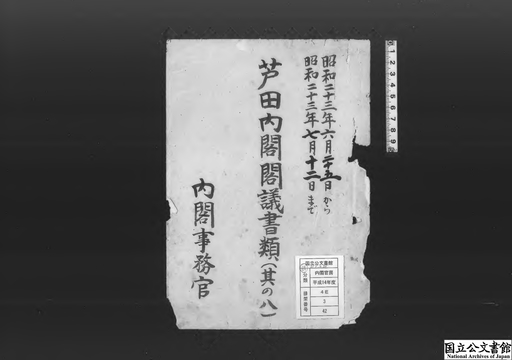 昭和二十三年六月二十五日から
昭和二十三年七月十二日まで
芦田内閣閣議書類(其の八)
内閣事務官
国立公文書館
分類
内閣官房
平成14年度
4E
3
国立公文書館
National Archives of Japan